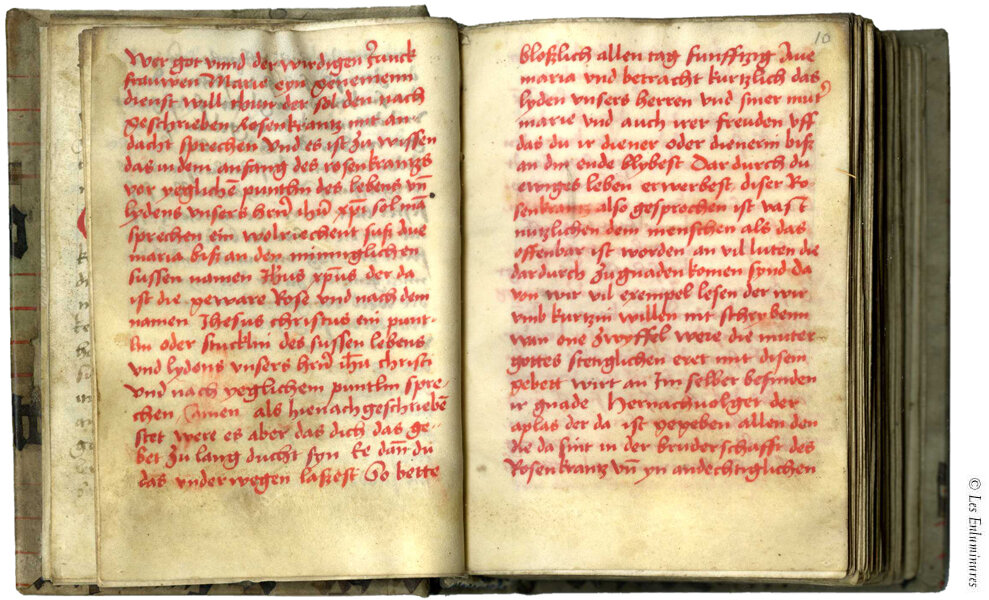 wer got vnnd der wirdigen Junck
frauwen Marie eyn genemenn
dienst will thun der sol den nach
geschrieben Rosenkrantz mit an-
dacht sprechen vnd es ist zu wissen
das in dem anfang des rosenkrantzs
vor yeglichē punthin des lebens vn̄
lydens vnsers hrn̄ ihū xpi sol mā
sprechen ein wolriechent suß aue
maria biß an den minniglichen
sussen namen Ihus xpus der da
ist die geware Rose vnd nach dem
namen Jhesus christus ein punt-
lin oder stucklini des sussen lebens
vnd lydens vnsers hrn̄ ihū christi
vnd nach yeglichem puntlin spre-
chen Amen als hienach geschriebē
stet were es aber das dich das ge-
bet zu lang ducht syn ee dan̄ du
das vnder wegen lassest So bette
10
bloßlich allen tag funfftzig Aue
maria vnd betracht kurtzlich das
lyden vnsers herren vnd siner mut͛
marie vnd auch irer freuden vff
das du ir diener oder dienerin biß
an din ende blybest Dar durch du
ewiges leben erwerbest diser Ro
senkrantz also gesprochen ist vast
nutzlichen dem menschen als das
offenbar ist worden an vil luten die
dar durch zu gnaden komen synd da
von wir vil exempel lesen der wir
vmb kurtzin willen nit schrybenn
wan one zwyffel were die muter
gottes stenglichen eret mit disem
gebett wirt an Im selber befinden
ir gnade Hernachuolget der
aplas der da ist gegeben allen den
die da sint in der bruderschafft des
Rosenkrantz vn̄ yn andechtiglichen
© Les Enluminures